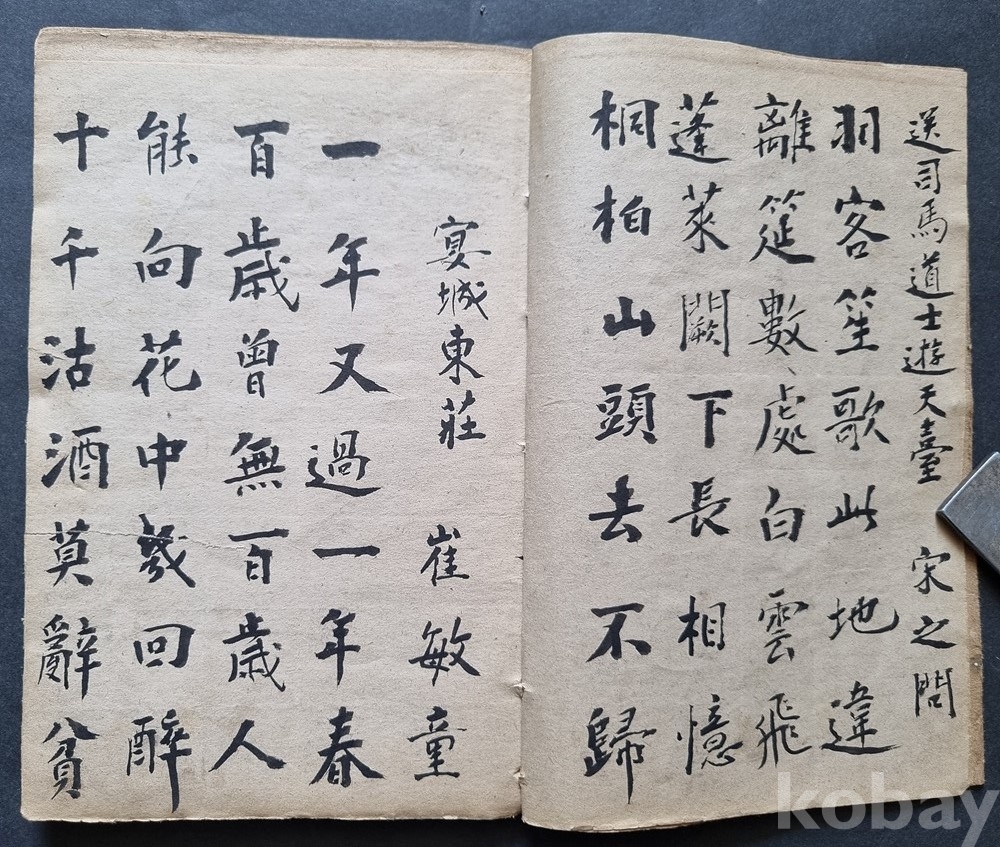 送司馬道士遊天臺 宋之問
羽客笙歌此地違
離筵數處白雲飛
蓬萊闕下長相憶
桐柏山頭去不歸
宴城東莊 崔敏童
一年又過一年春
百歲曾無百歲人
能向花中幾回醉
十千沽酒莫辭貧
kobay